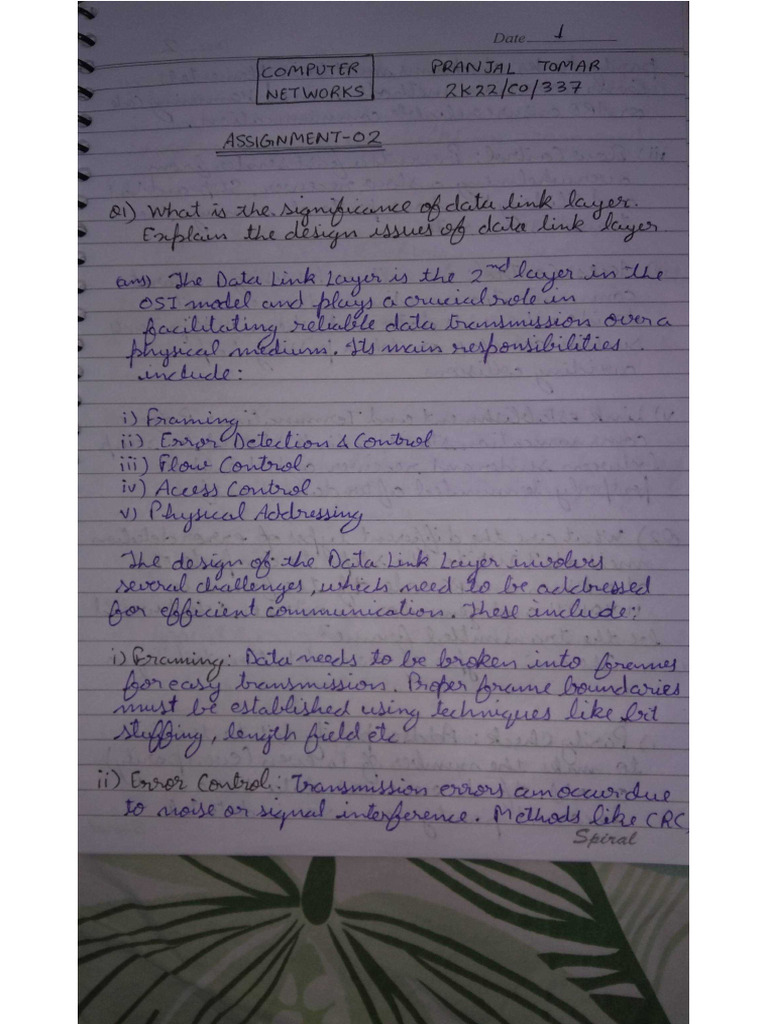 Date 1
COMPUTER NETWORKS
PRANJAL TOMAR
2K22/CO/337
ASSIGNMENT-02
Q1) What is the significance of data link layer.
Explain the design issues of data link layer
ans) The Data Link Layer is the 2nd layer in the
OSI model and plays a crucial role in
facilitating reliable data transmission over a
physical medium. Its main responsibilities
include:
i) Framing
ii) Error Detection & Control
iii) Flow Control
iv) Access Control
v) Physical Addressing
The design of the Data Link Layer involves
several challenges, which need to be addressed
for efficient communication. These include:
i) Framing: Data needs to be broken into frames
for easy transmission. Proper frame boundaries
must be established using techniques like bit
stuffing, length field etc
ii) Error Control: Transmission errors can occur due
to noise or signal interference. Methods like CRC,
Spiral